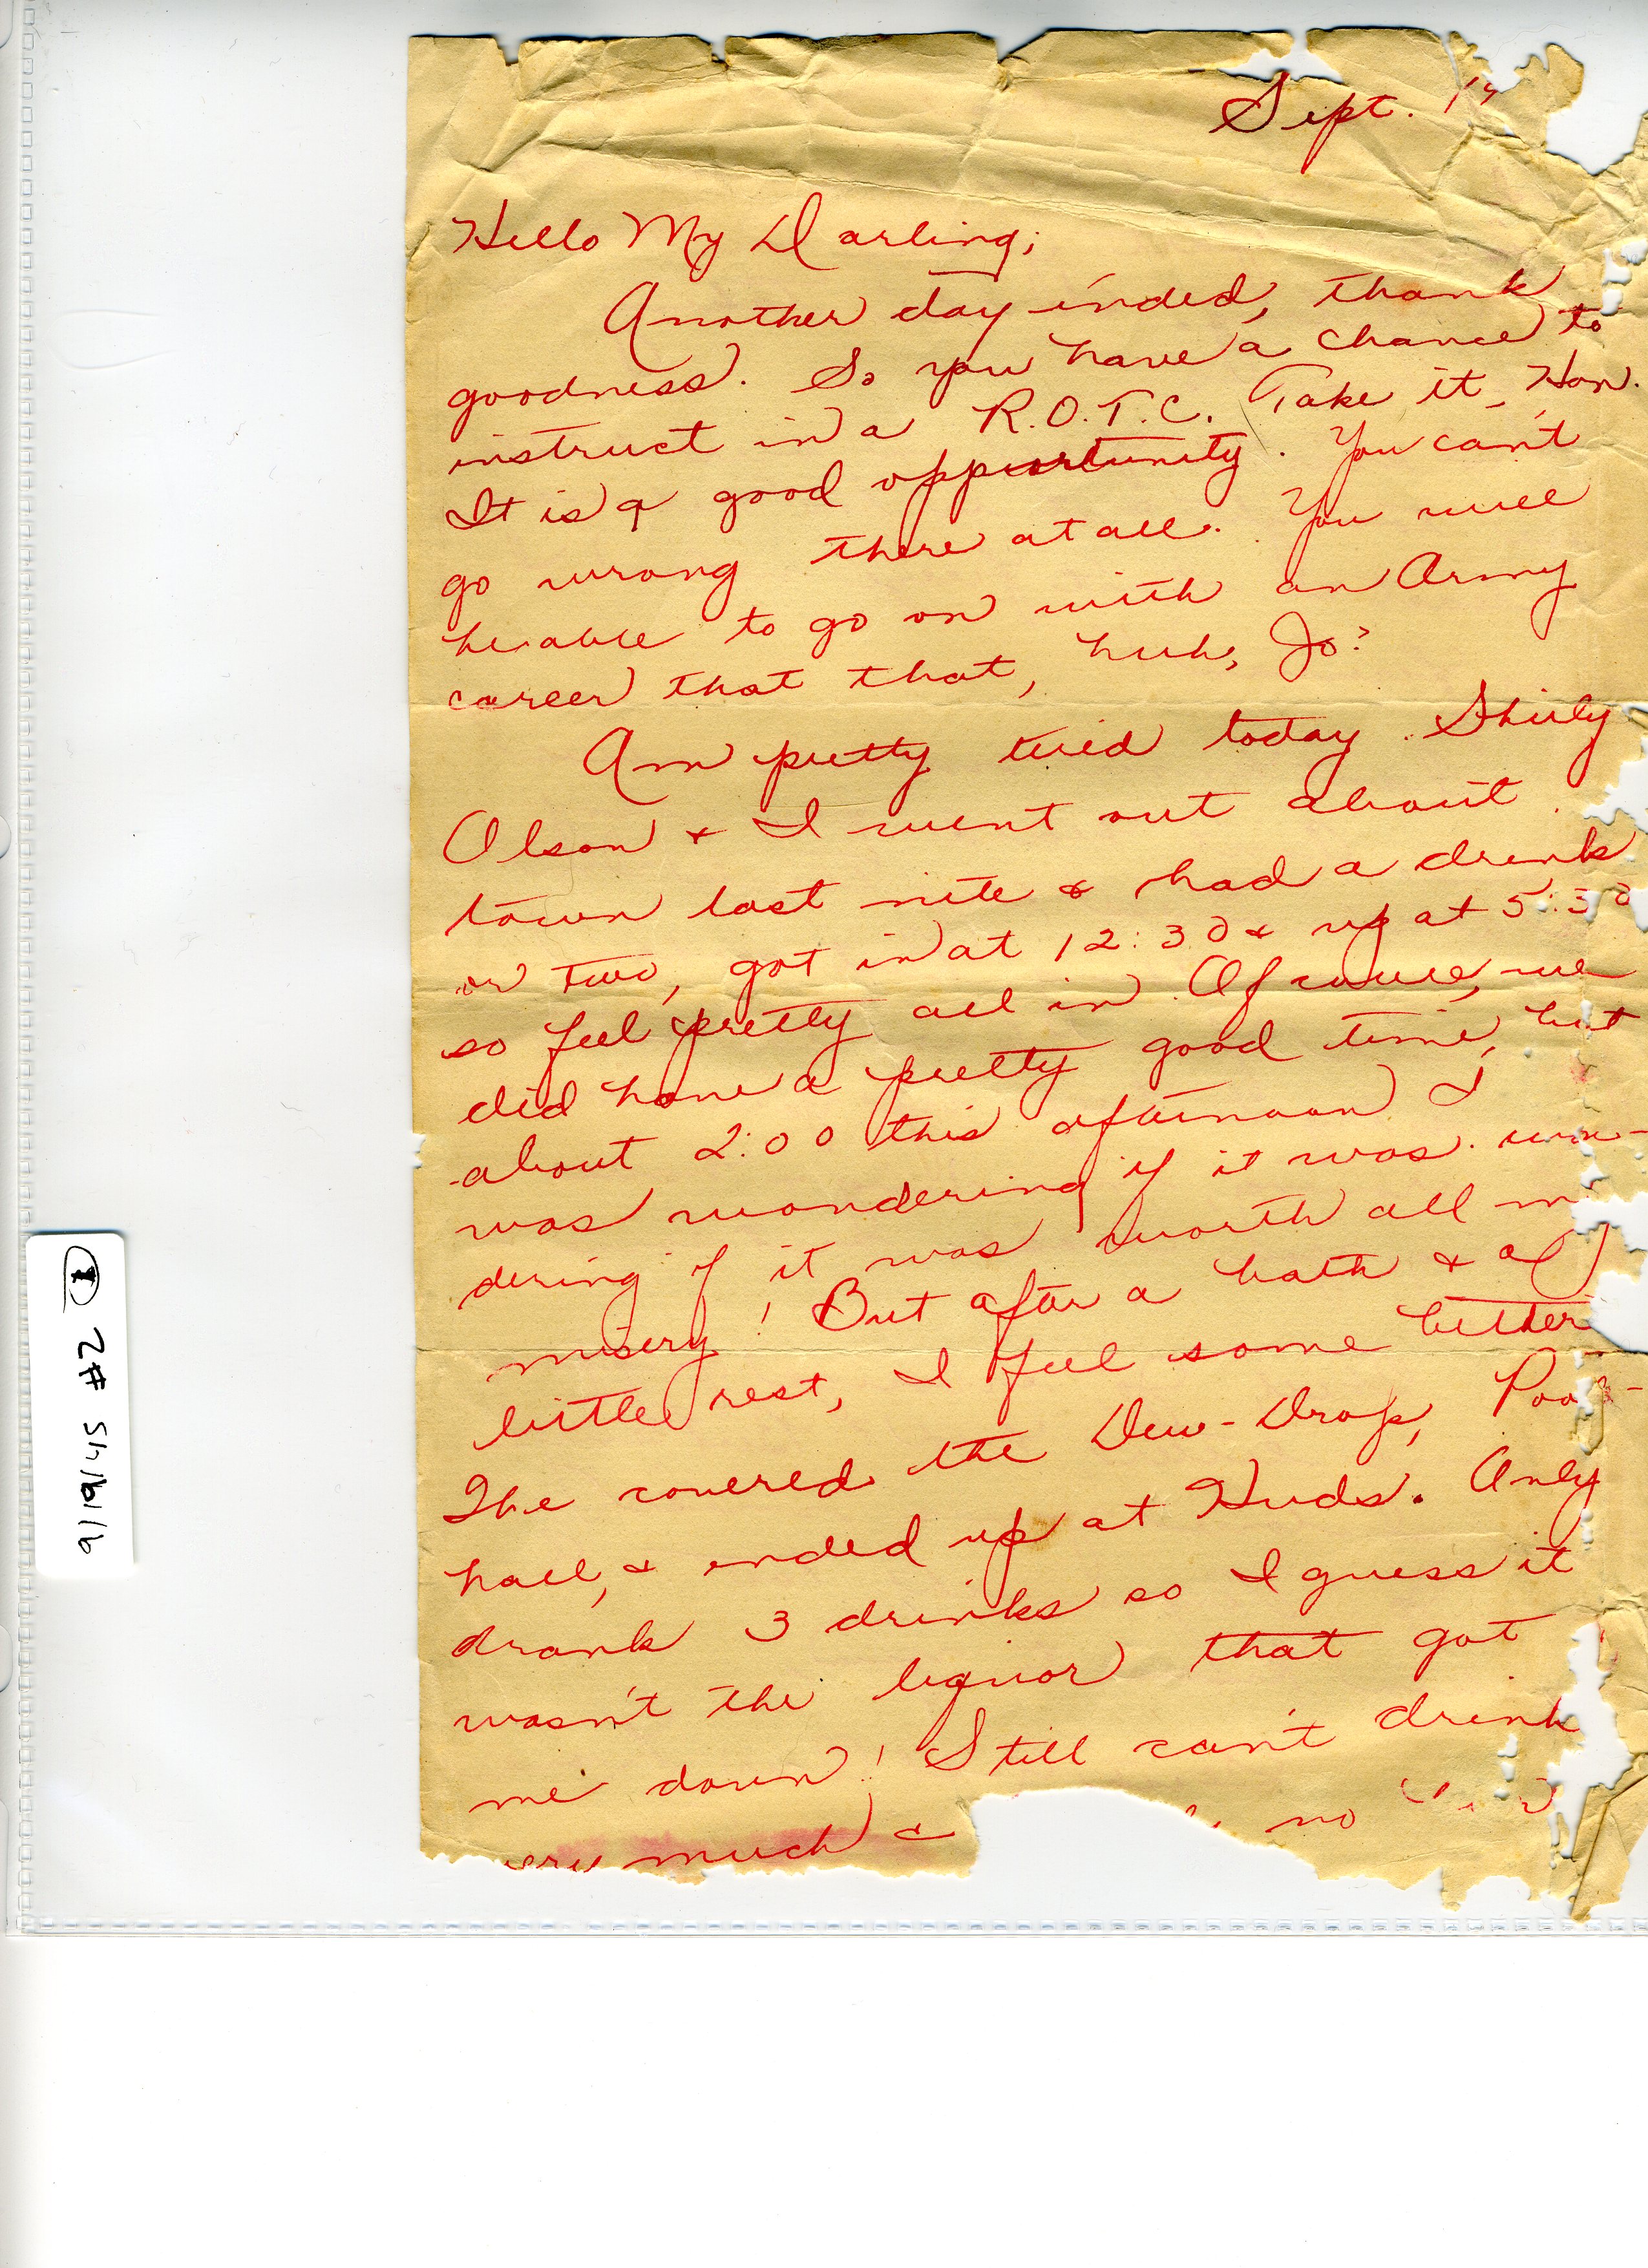 Sept. 19
Hello My Darling;
Another day ended, thank
goodness. So you have a chance to
instruct in a R.O.T.C. Take it, Hon.
It is a good opportunity. You can't
go wrong there at all. You will
be able to go on with an Army
career that that, huh, Jo?
Am pretty tired today. Shirly
Olson & I went out about
town last nite & had a drink
or two, got in at 12:30 & up at 5:30
so feel pretty all in. Of course, we
did have a pretty good time, but
about 2:00 this afternoon I
was wondering if it was won-
dering if it was worth all m
misery! But after a bath & a
little rest, I feel some better
The covered the Dew-Drop, Pool-
hall, & ended up at Huds. Only
drank 3 drinks so I guess it
wasn't the liquor that got
me down! Still can't drink
very much & no
9/19/45 #2 1